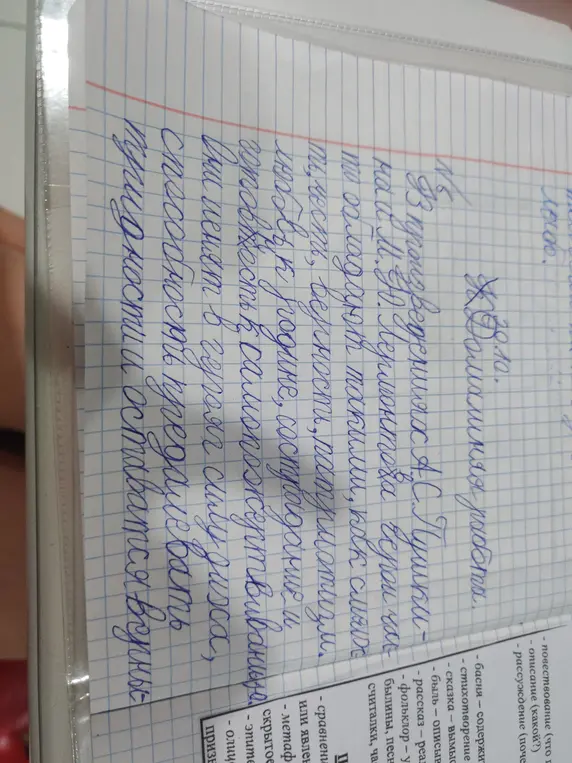 лою.
10.
Домашняя работа.
№5
В произведениях А.С. Пушки-
на и М.Ю. Лермонтова герои
обладают такими, как
верность, патриотизм
любовь к родине, сострадание и
Они ценят в героях силу духа,
способность преодолевать
трудности и оставатся верны-
- повествование (что
- описание (какой?)
- рассуждение (поче
- басня – содержи
- стихотворение
- сказка – вымыс
- быль – описыв
- рассказ – реа
- фольклор – у
былины, песн
считалки, за
- сравнени
или явлен
- метаф
скрытое
- эпите
- олиц
призн